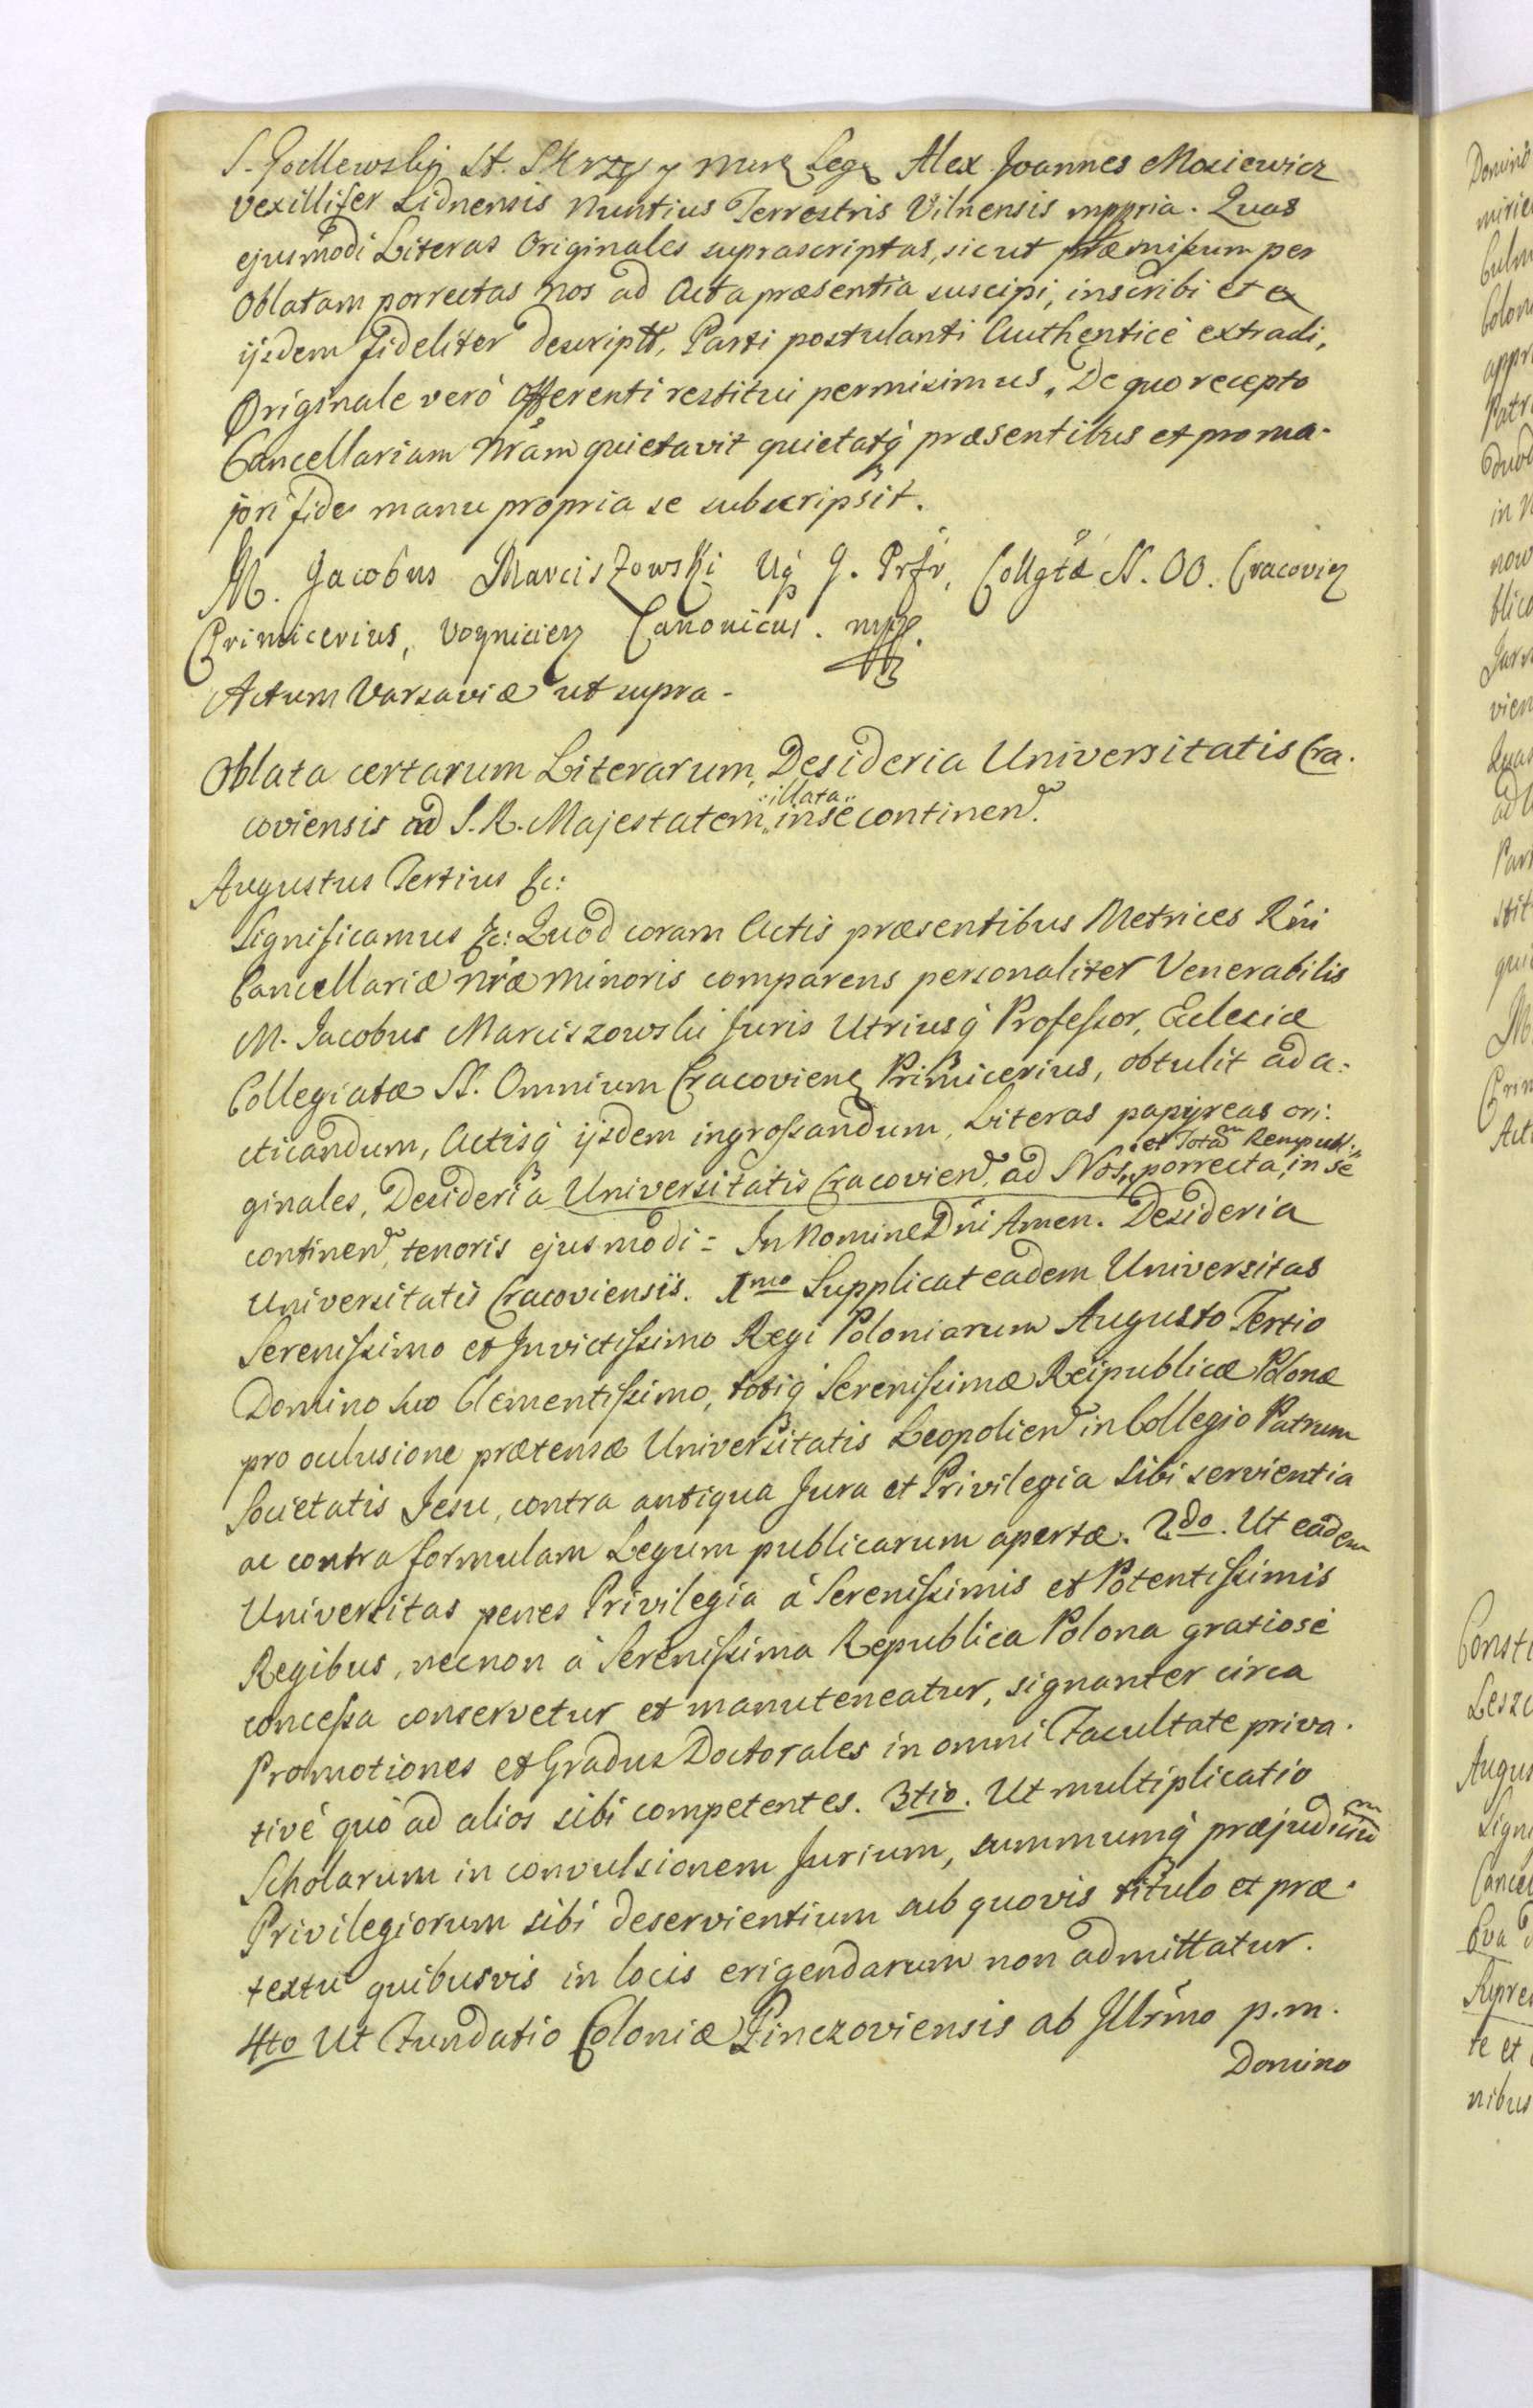 S. Godlewskij St. Skrzy y Mars Legs Alex Joannes Mosiewicz
Vexillifer Lidnensis Nuntius Terrestris Vilnensis mppria. Quas
ejusmodi Literas Originales suprascriptas, sicut præmissum per
Oblatam porrectas Nos ad Acta præsentia suscipi, inscribi et ex
ijsdem fideliter descriptt, Parti postulanti Authenticè extradi,
Originale verò Offerenti restitui permisimus. De quo recepto
Cancellariam Nram quietavit quietatq́ præsentibus et pro ma-
jori fide manu propria se subscripsit.
M. Jacobus Marciszowski Uq́ J. Prfr, Collgtæ SS. OO. Cracovien
Primicerius, Voynicien Canonicus. mpp.
Actum Varsaviæ ut supra.
Oblata certarum Literarum, Desideria Universitatis Cra-
coviensis ad S. R. Majestatem :illata: in se continen.
Augustus Tertius &c:
Significamus &c: Quod coram Actis præsentibus Metrices Rni
Cancellariæ Nræ Minoris comparens personaliter Venerabilis
M. Jacobus Marciszowski Juris Utriusq́ Professor, Ecclesiæ
Collegiatæ SS. Omnium Cracovien Primicerius, obtulit ad a-
cticandum, Actisq́ ijsdem ingrossandum, Literas papyreas ori-
ginales, Desideria Universitatis Cracovien, ad Nos :et Totam Rempubl: porrecta, in se
continen, tenoris ejusmodi = In Nomine Dni Amen. Desideria
Universitatis Cracoviensis. 1mo Supplicat eadem Universitas
Serenissimo et Invictissimo Regi Poloniarum Augusto Tertio
Domino suo Clementissimo, totiq́ Serenissimæ Reipublicæ Polonæ
pro occlusione prætensæ Universitatis Leopolien in Collegio Patrum
Societatis Jesu, contra antiqua Jura et Privilegia sibi servientia
ac contra formulam Legum publicarum apertæ. 2do. Ut eadem
Universitas penes Privilegia à Serenissimis et Potentissimis
Regibus, necnon à Serenissima Republica Polona gratiosè
concessa conservetur et manuteneatur, signanter circa
Promotiones et Gradus Doctorales in omni Facultate priva-
tivè quò ad alios sibi competentes. 3tio. Ut multiplicatio
Scholarum in convulsionem Jurium, summumq́ præjudicium
Privilegiorum sibi deservientium sub quovis titulo et præ-
textu quibusvis in locis erigendarum non admittatur.
4to Ut Fundatio Coloniæ Pinczoviensis ab Illrmo p.m.
Domino